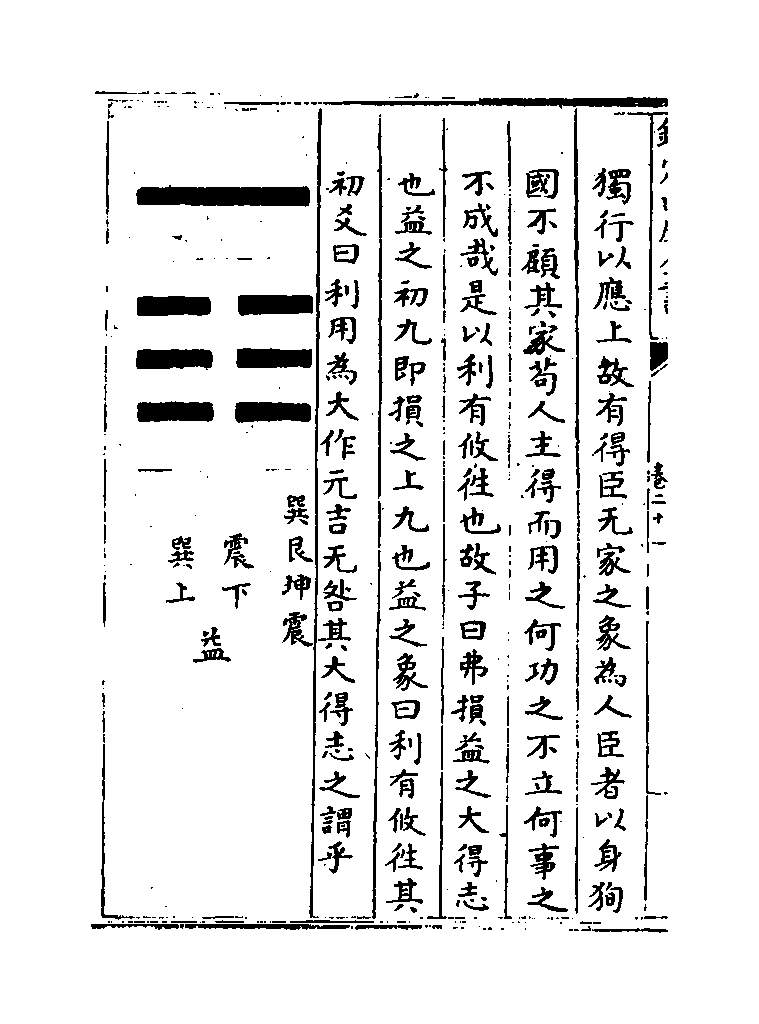 獨行以應上故有得臣无家之象為人臣者以身狥
國不顧其家茍人主得而用之何功之不立何事之
不成哉是以利有攸徃也故子曰弗損益之大得志
也益之初九即損之上九也益之象曰利有攸徃其
初爻曰利用為大作元吉无咎其大得志之謂乎
巽艮坤震
震下
巽上
益
卷二十一